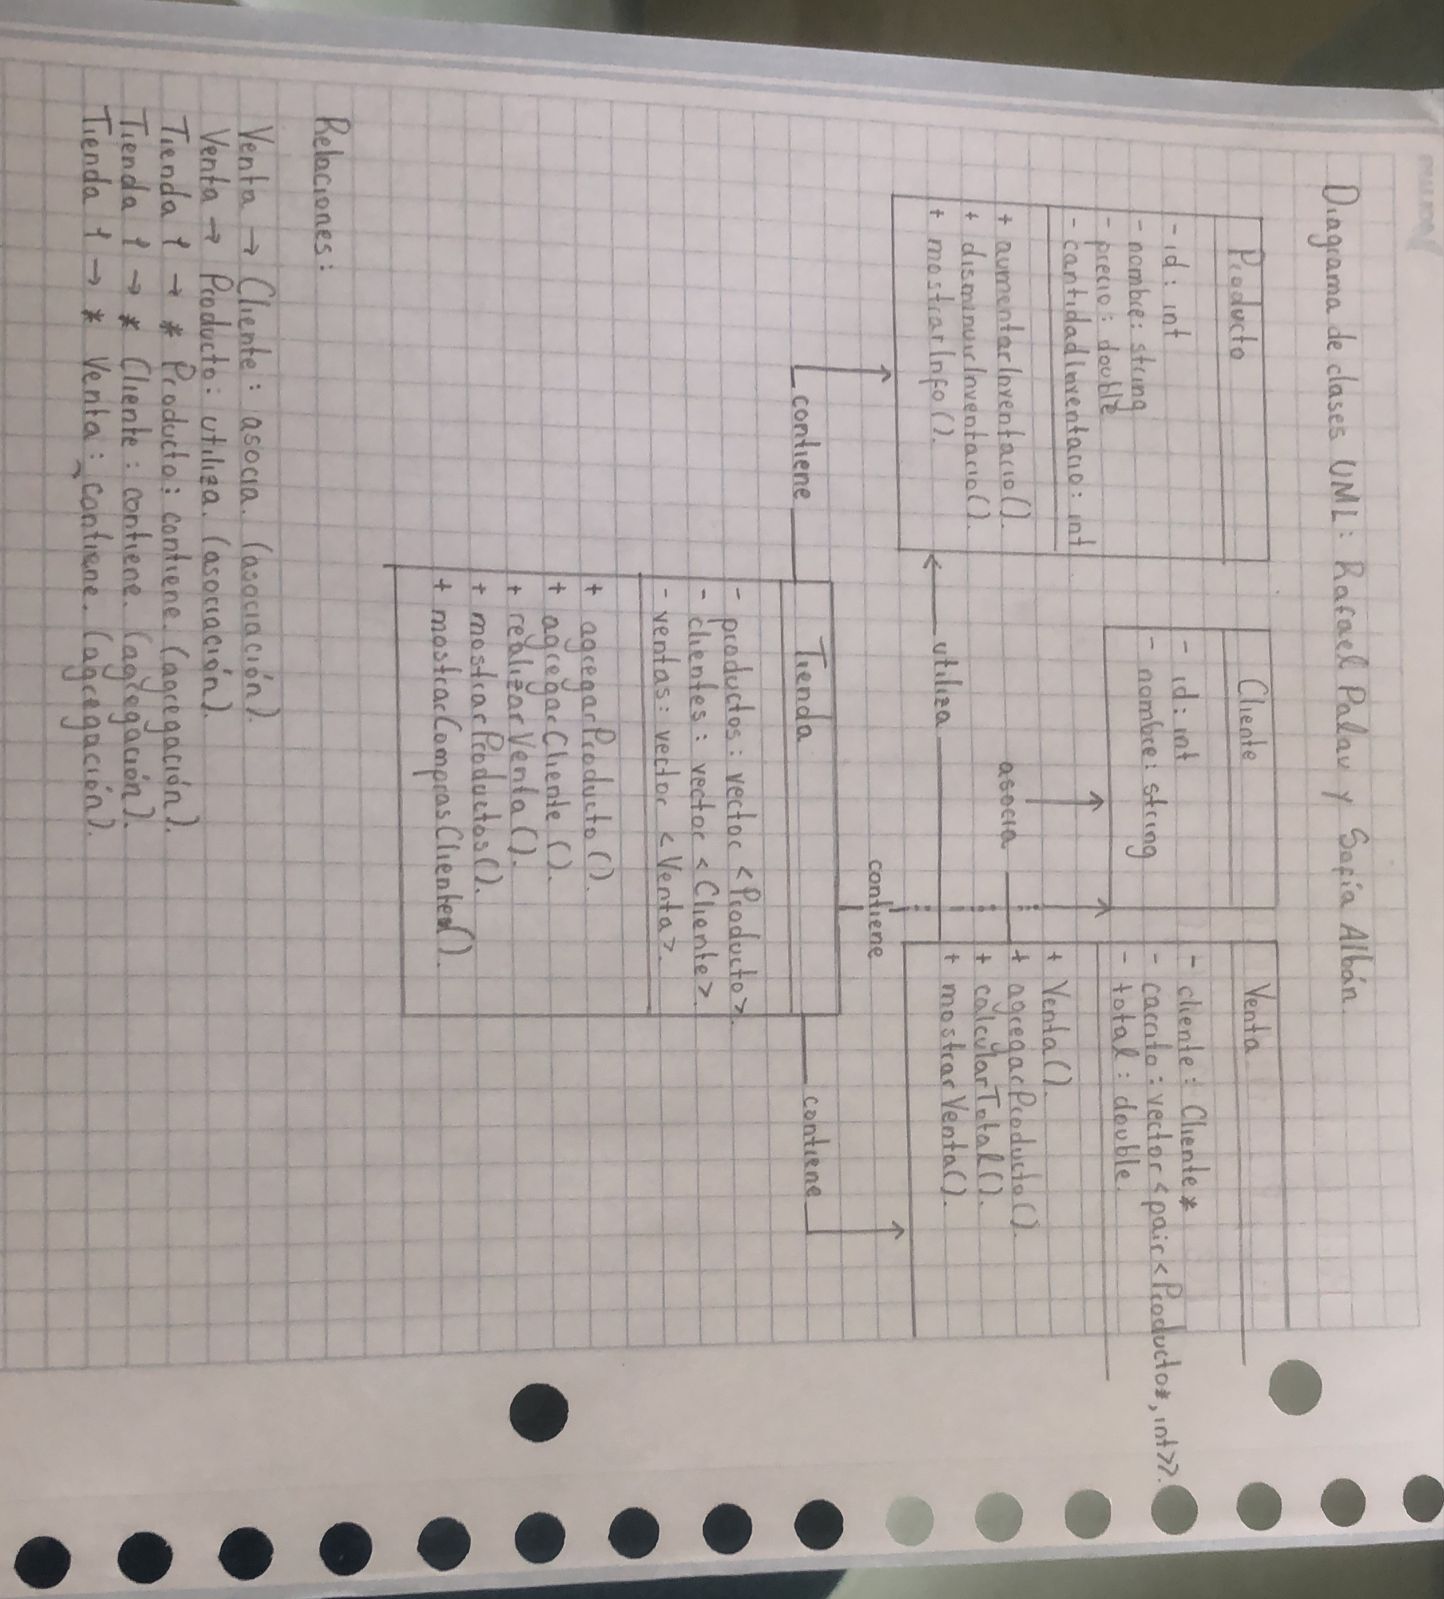 Diagrama de clases UML: Rafael Palau y Sofía Albán.
Producto
- id: int
- nombre: string
- precio: double
- cantidadInventario: int
+ aumentarInventario().
+ disminuirInventario().
+ mostrarInfo().
Cliente
- id: int
- nombre: string
Venta
- cliente: Cliente*
- carrito: vector<pair<Producto*, int>>.
- total: double.
+ Venta().
+ agregarProducto().
+ calcularTotal().
+ mostrarVenta().
asocia
utiliza
contiene
contiene
contiene
Tienda
- productos: vector <Producto>.
- clientes: vector <Cliente>.
- ventas: vector <Venta>.
+ agregarProducto().
+ agregarCliente().
+ realizarVenta().
+ mostrarProductos().
+ mostrarComprasCliente().
Relaciones:
Venta → Cliente: asocia. (asociación).
Venta → Producto: utiliza. (asociación).
Tienda 1 → * Producto: contiene. (agregación).
Tienda 1 → * Cliente: contiene. (agregación).
Tienda 1 → * Venta: contiene. (agregación).